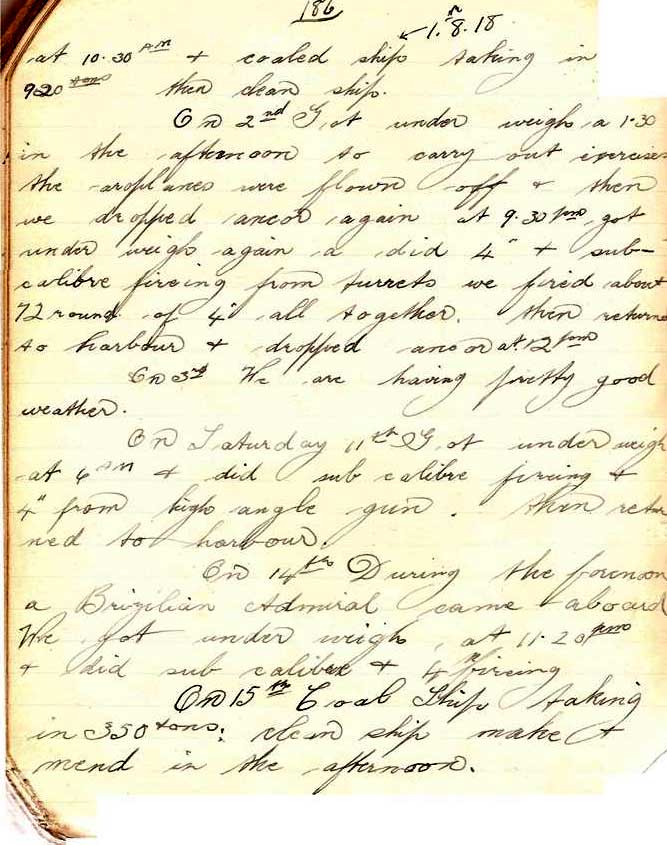 186
1.8.18
at 10.30 AM & coaled ship taking in
920 tons then clean ship.
On 2nd Got under weigh a 1.30
in the afternoon to carry out exercises
the aroplanes were flown off & then
we dropped ancor again at 9.30 pm got
under weigh again a did 4" & sub-
calibre fireing from turrets we fired about
72 round of 4" all together. then return
to harbour & dropped ancor at 12 pm
On 3rd We are having pretty good
weather.
On Saturday 11th Got under weigh
at 6 AM & did sub calibre fireing &
4" from high angle gun. then retur
ned to harbour.
On 14th During the forenoon
a Brizilian Admiral came aboard
We got under weigh, at 11.20 pm
& did sub calibre & 4" fireing
On 15th Coal Ship taking
in 350 tons: clean ship make &
mend in the afternoon.